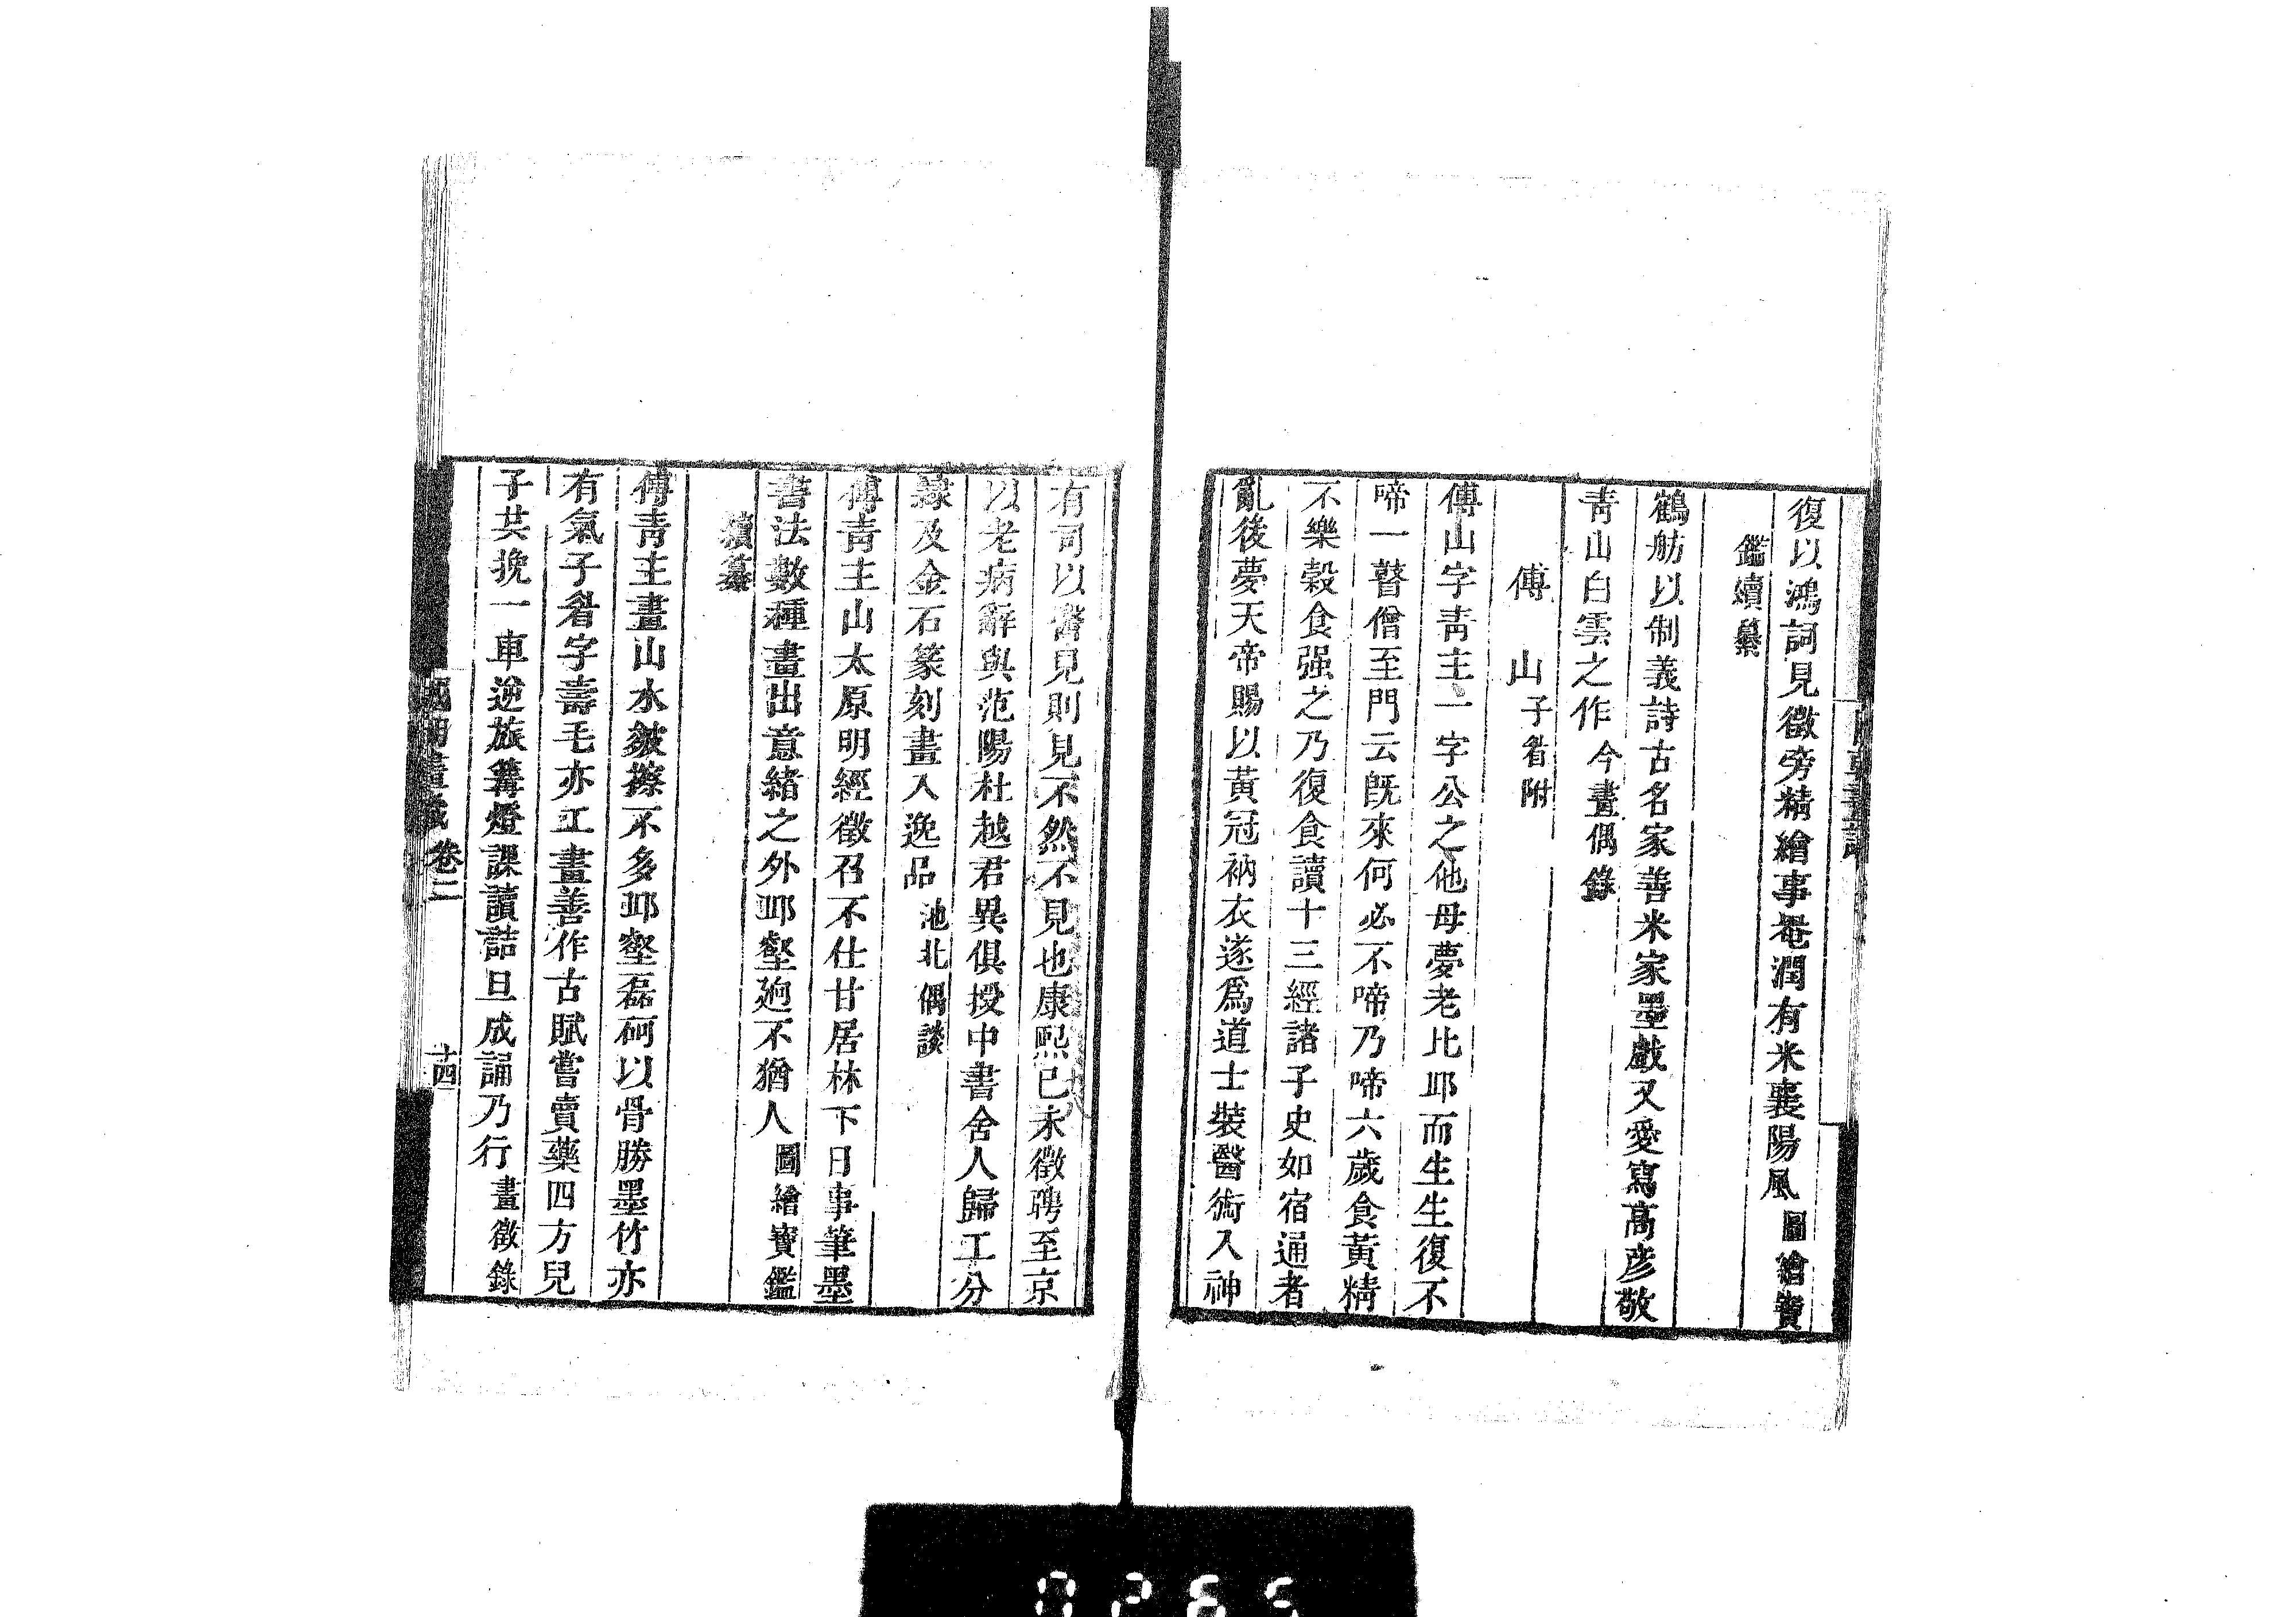 復以鴻詞見徵旁精繪事菴潤有米襄陽風圖繪寶
鑑續纂
鶴舫以制義詩古名家善米家墨戲又愛寫高彥敬
青山白雲之作今畫偶錄
傅山子眉附
傅山字青主一字公之他母夢老比邱而生生復不
啼一瞽僧至門云既來何必不啼乃啼六歲食黃精
不樂穀食强之乃復食讀十三經諸子史如宿通者
亂後夢天帝賜以黃冠衲衣遂爲道士裝醫術入神
有司以醫見則見不然不見也康熙己未徵聘至京
以老病辭與范陽杜越君異俱授中書舍人歸工分
隸及金石篆刻畫入逸品池北偶談
傅青主山太原明經徵召不仕甘居林下日事筆墨
書法數種畫出意緒之外邱壑迥不猶人圖繪寶鑑
續纂
傅青主畫山水皴擦不多邱壑磊砢以骨勝墨竹亦
有氣子眉字壽毛亦工畫善作古賦嘗賣藥四方兒
子共挽一車逆旅篝燈課讀詰旦成誦乃行畫徵錄
國朝畫識 卷二 十四